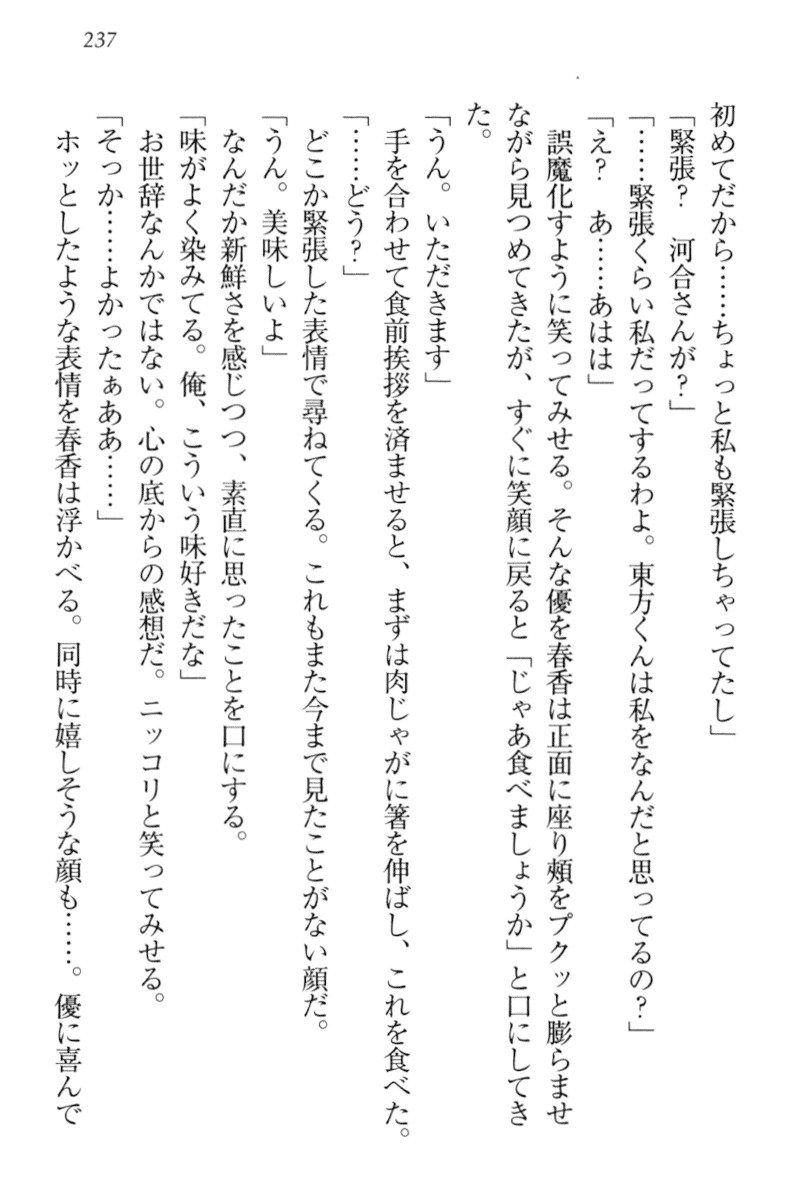 237
初めてだから……ちょっと私も緊張しちゃってたし」
「緊張？　河合さんが？」
「……緊張くらい私だってするわよ。東方くんは私をなんだと思ってるの？」
「え？　あ……あはは」
　誤魔化すように笑ってみせる。そんな優を春香は正面に座り頬をプクッと膨らませ
ながら見つめてきたが、すぐに笑顔に戻ると「じゃあ食べましょうか」と口にしてき
た。
「うん。いただきます」
　手を合わせて食前挨拶を済ませると、まずは肉じゃがに箸を伸ばし、これを食べた。
「……どう？」
　どこか緊張した表情で尋ねてくる。これもまた今まで見たことがない顔だ。
「うん。美味しいよ」
　なんだか新鮮さを感じつつ、素直に思ったことを口にする。
「味がよく染みてる。俺、こういう味好きだな」
　お世辞なんかではない。心の底からの感想だ。ニッコリと笑ってみせる。
「そっか……よかったぁああ……」
　ホッとしたような表情を春香は浮かべる。同時に嬉しそうな顔も……。優に喜んで